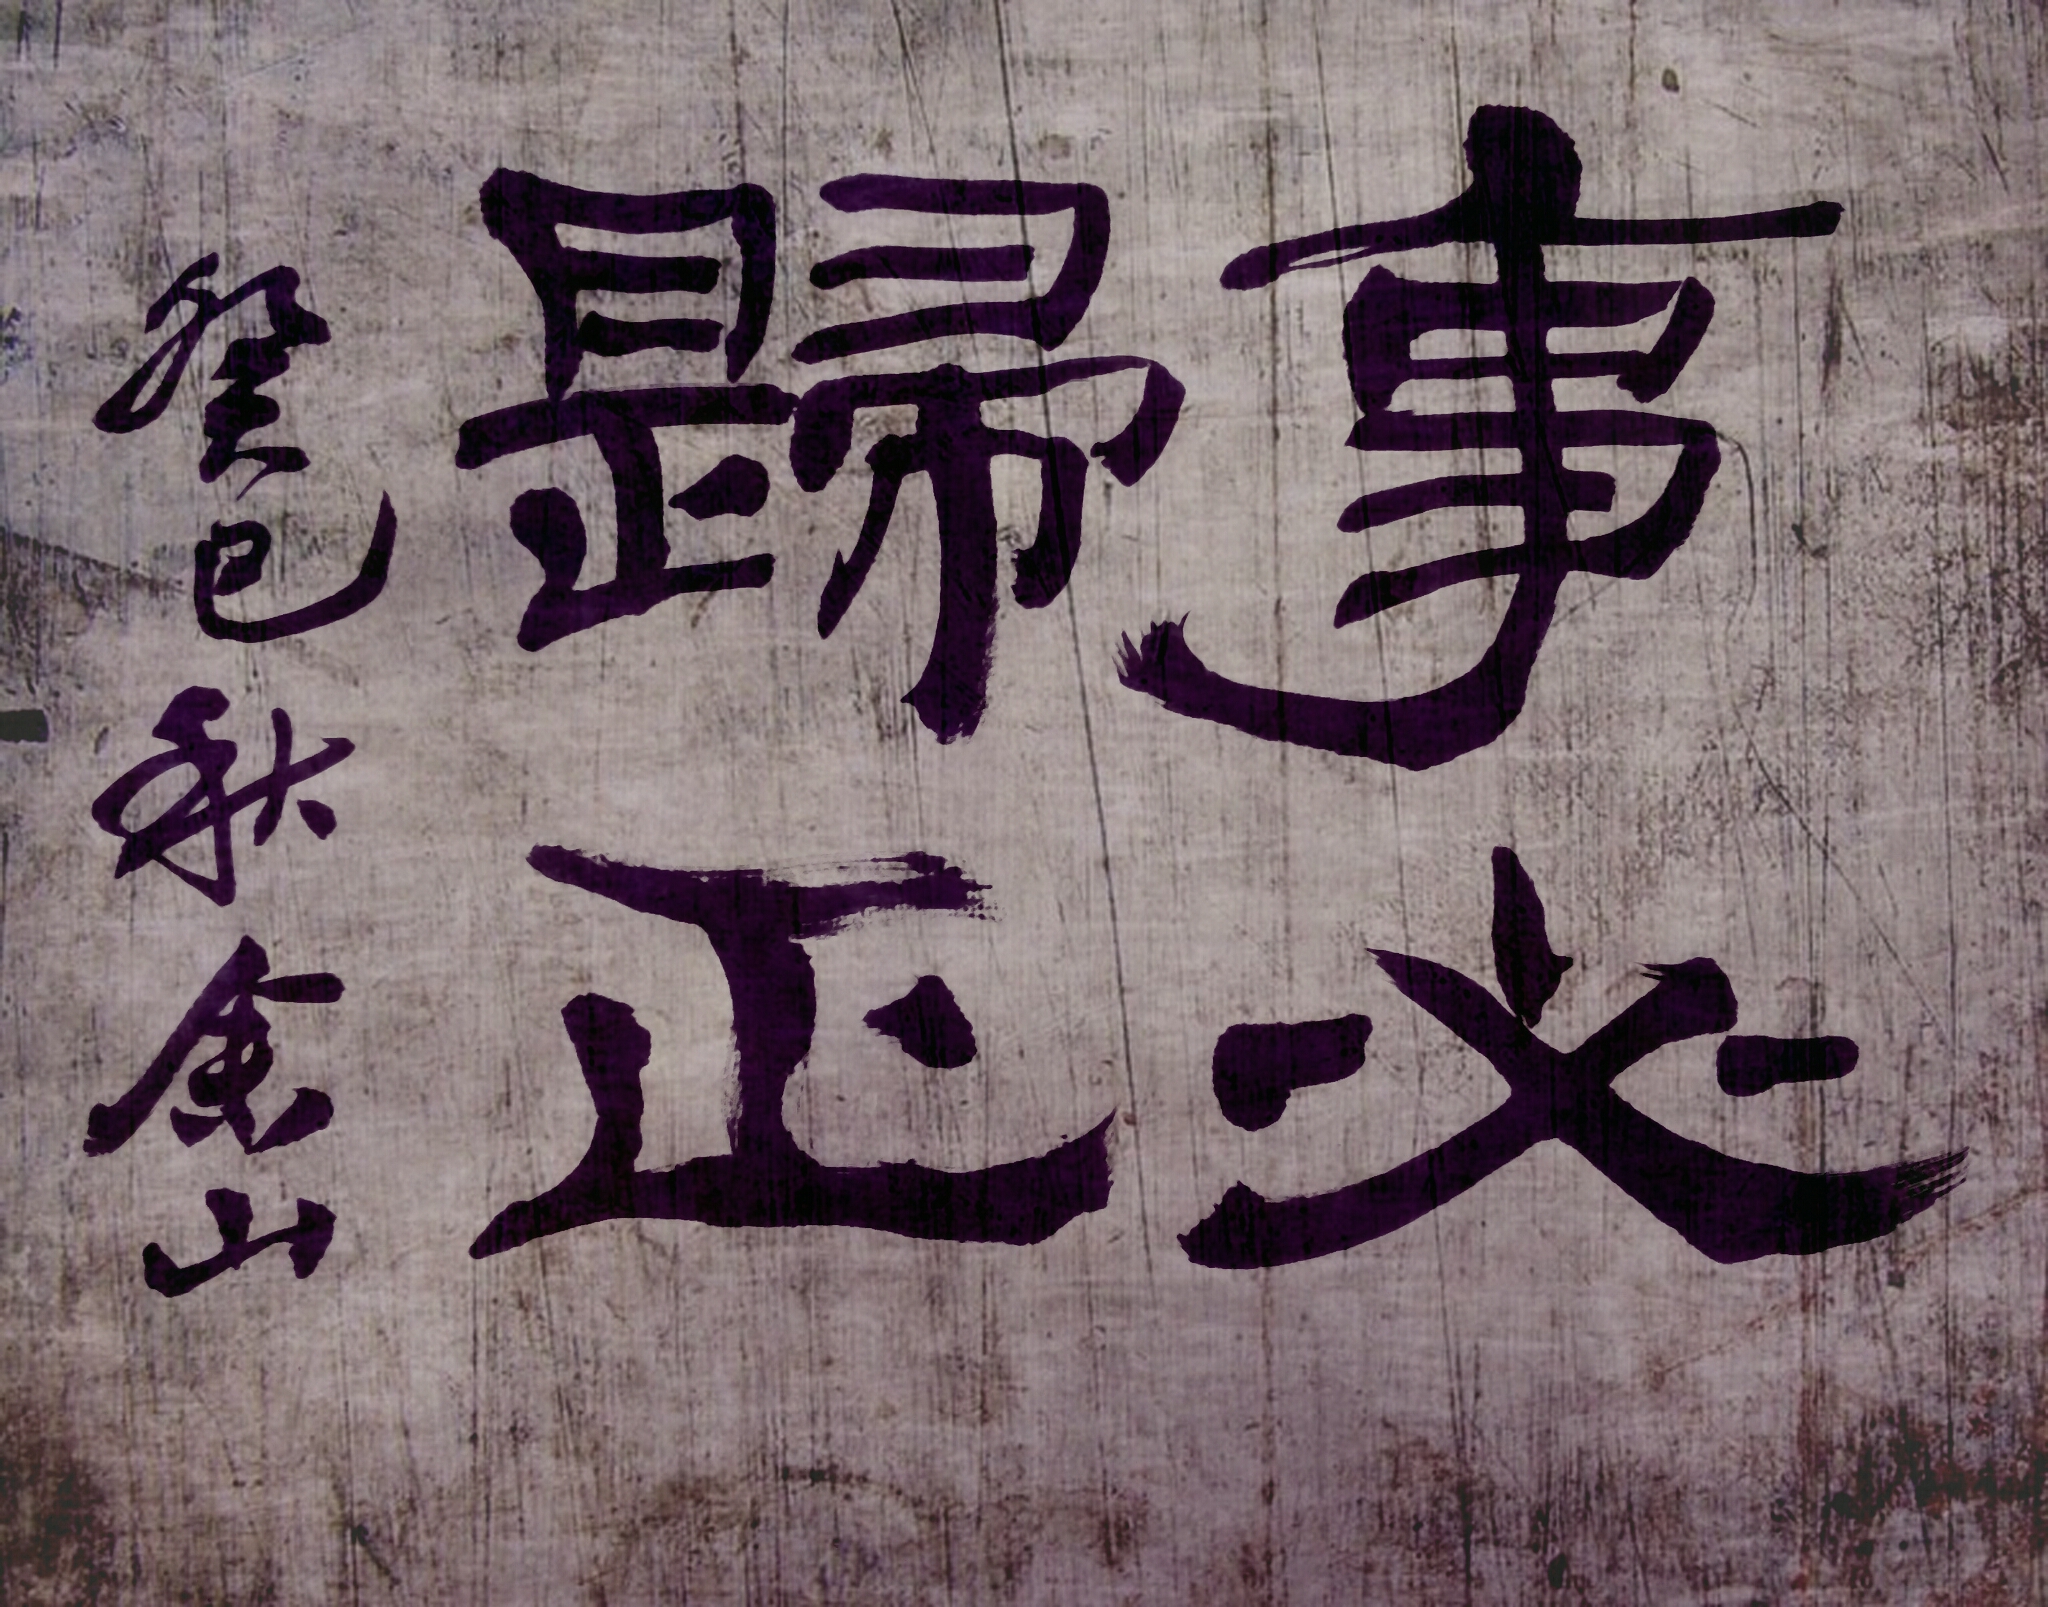 事必
歸正
癸巳 秋 金山